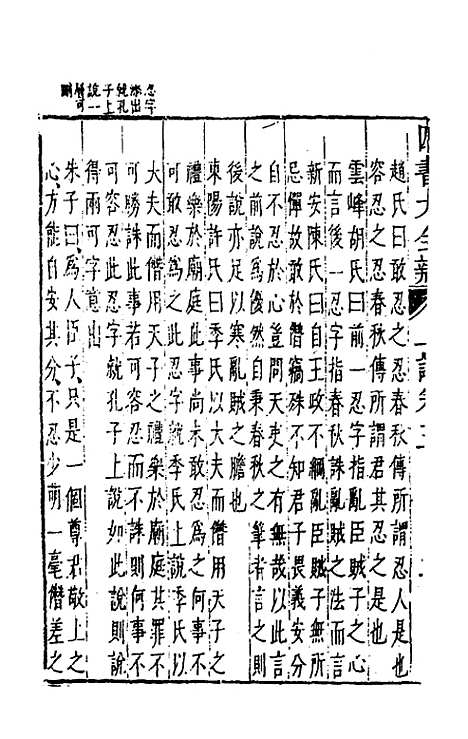 忍字
添出
純孔
子上
說一
層可
刪
四書大全辨 上論卷三
趙氏曰敢忍春秋傳所謂忍人是也
容忍之忍春秋傳所謂君其忍之是也
雲峰胡氏曰前一忍字指亂臣賊子之心
而言後一忍字指春秋誅亂賊之法而言
新安陳氏曰自王政不綱亂臣賊子無所
忌憚故敢於僭竊殊不知君子畏義安分
自不忍於心豈問天吏之有無哉以此言
之前說為當然自秉春秋之筆者言之則
後說亦足以寒亂賊之膽也
東陽許氏曰季氏以大夫而僭用天子之
禮樂於廟庭此事尚未敢忍為之何事不
可敢忍為之此忍字就季氏上說季氏以
大夫而僭用天子之禮樂於廟庭其罪不
可勝誅此事若可容忍而不誅則何事不
可容忍此忍字就孔子上說如此說則說
得兩可字意出
朱子曰為人臣子只是一個尊君敬上之
心方能自安其分不忍少萌一毫僭差之